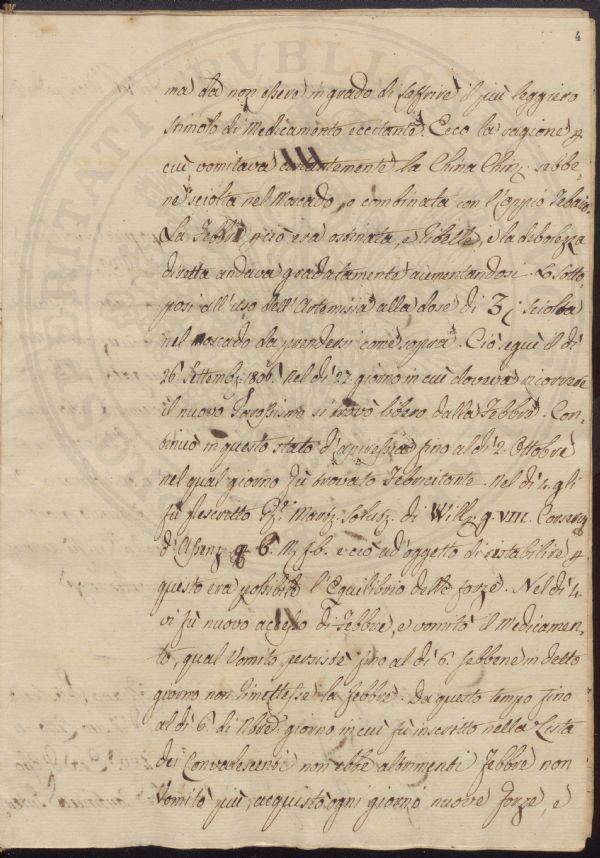 4
ma da non essere in grado di soffrire il più leggiero
stimolo di Medicamento eccitante. Ecco la ragione p
cui vomitava costantemente la China Chin. sebbe-
ne sciolta nel Moscado, o combinata con l'oppio Tebaico
La Febbre però era ostinata, e ribelle, e la debolezza
diretta andava gradatamente aumentandosi. Lo sotto-
posi all'uso dell'Artemisia alla dose di 3j sciolta
nel moscado da prendersi come sopra. Ciò seguì il dì
26 Settemb. 1806. Nel dì 27 giorno in cui doveva ricorrere
il nuovo Parossismo si trovò libero dalla Febbre. Con-
tinuò in questo stato d'apiressia fino al dì 2. Ottobre
nel qual giorno fù trovato Febricitante. Nel dì 4. gli
fù prescritto Mart. Solub. di Will. g. VIII. Conserv.
d'Assenz. 6. M. f. b. e ciò ad'oggetto di ristabilire p
questo era possibile l'Equilibrio delle forze. Nel dì 4.
vi fù nuovo accesso di Febbre, e vomitò il Medicamen-
to, qual Vomito persistè fino al dì 6. sebbene in detto
giorno non rimettesse la febbre. Da questo tempo fino
al dì 6. di 9bre giorno in cui fù inscritto nella Lista
dei Convalescenti non ebbe altrimenti Febbre non
Vomitò più, acquistò ogni giorno nuove forze, e